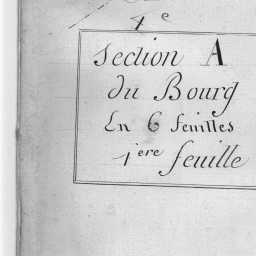 4e
Section A
du Bourg
En 6 feuilles
1ere feuille